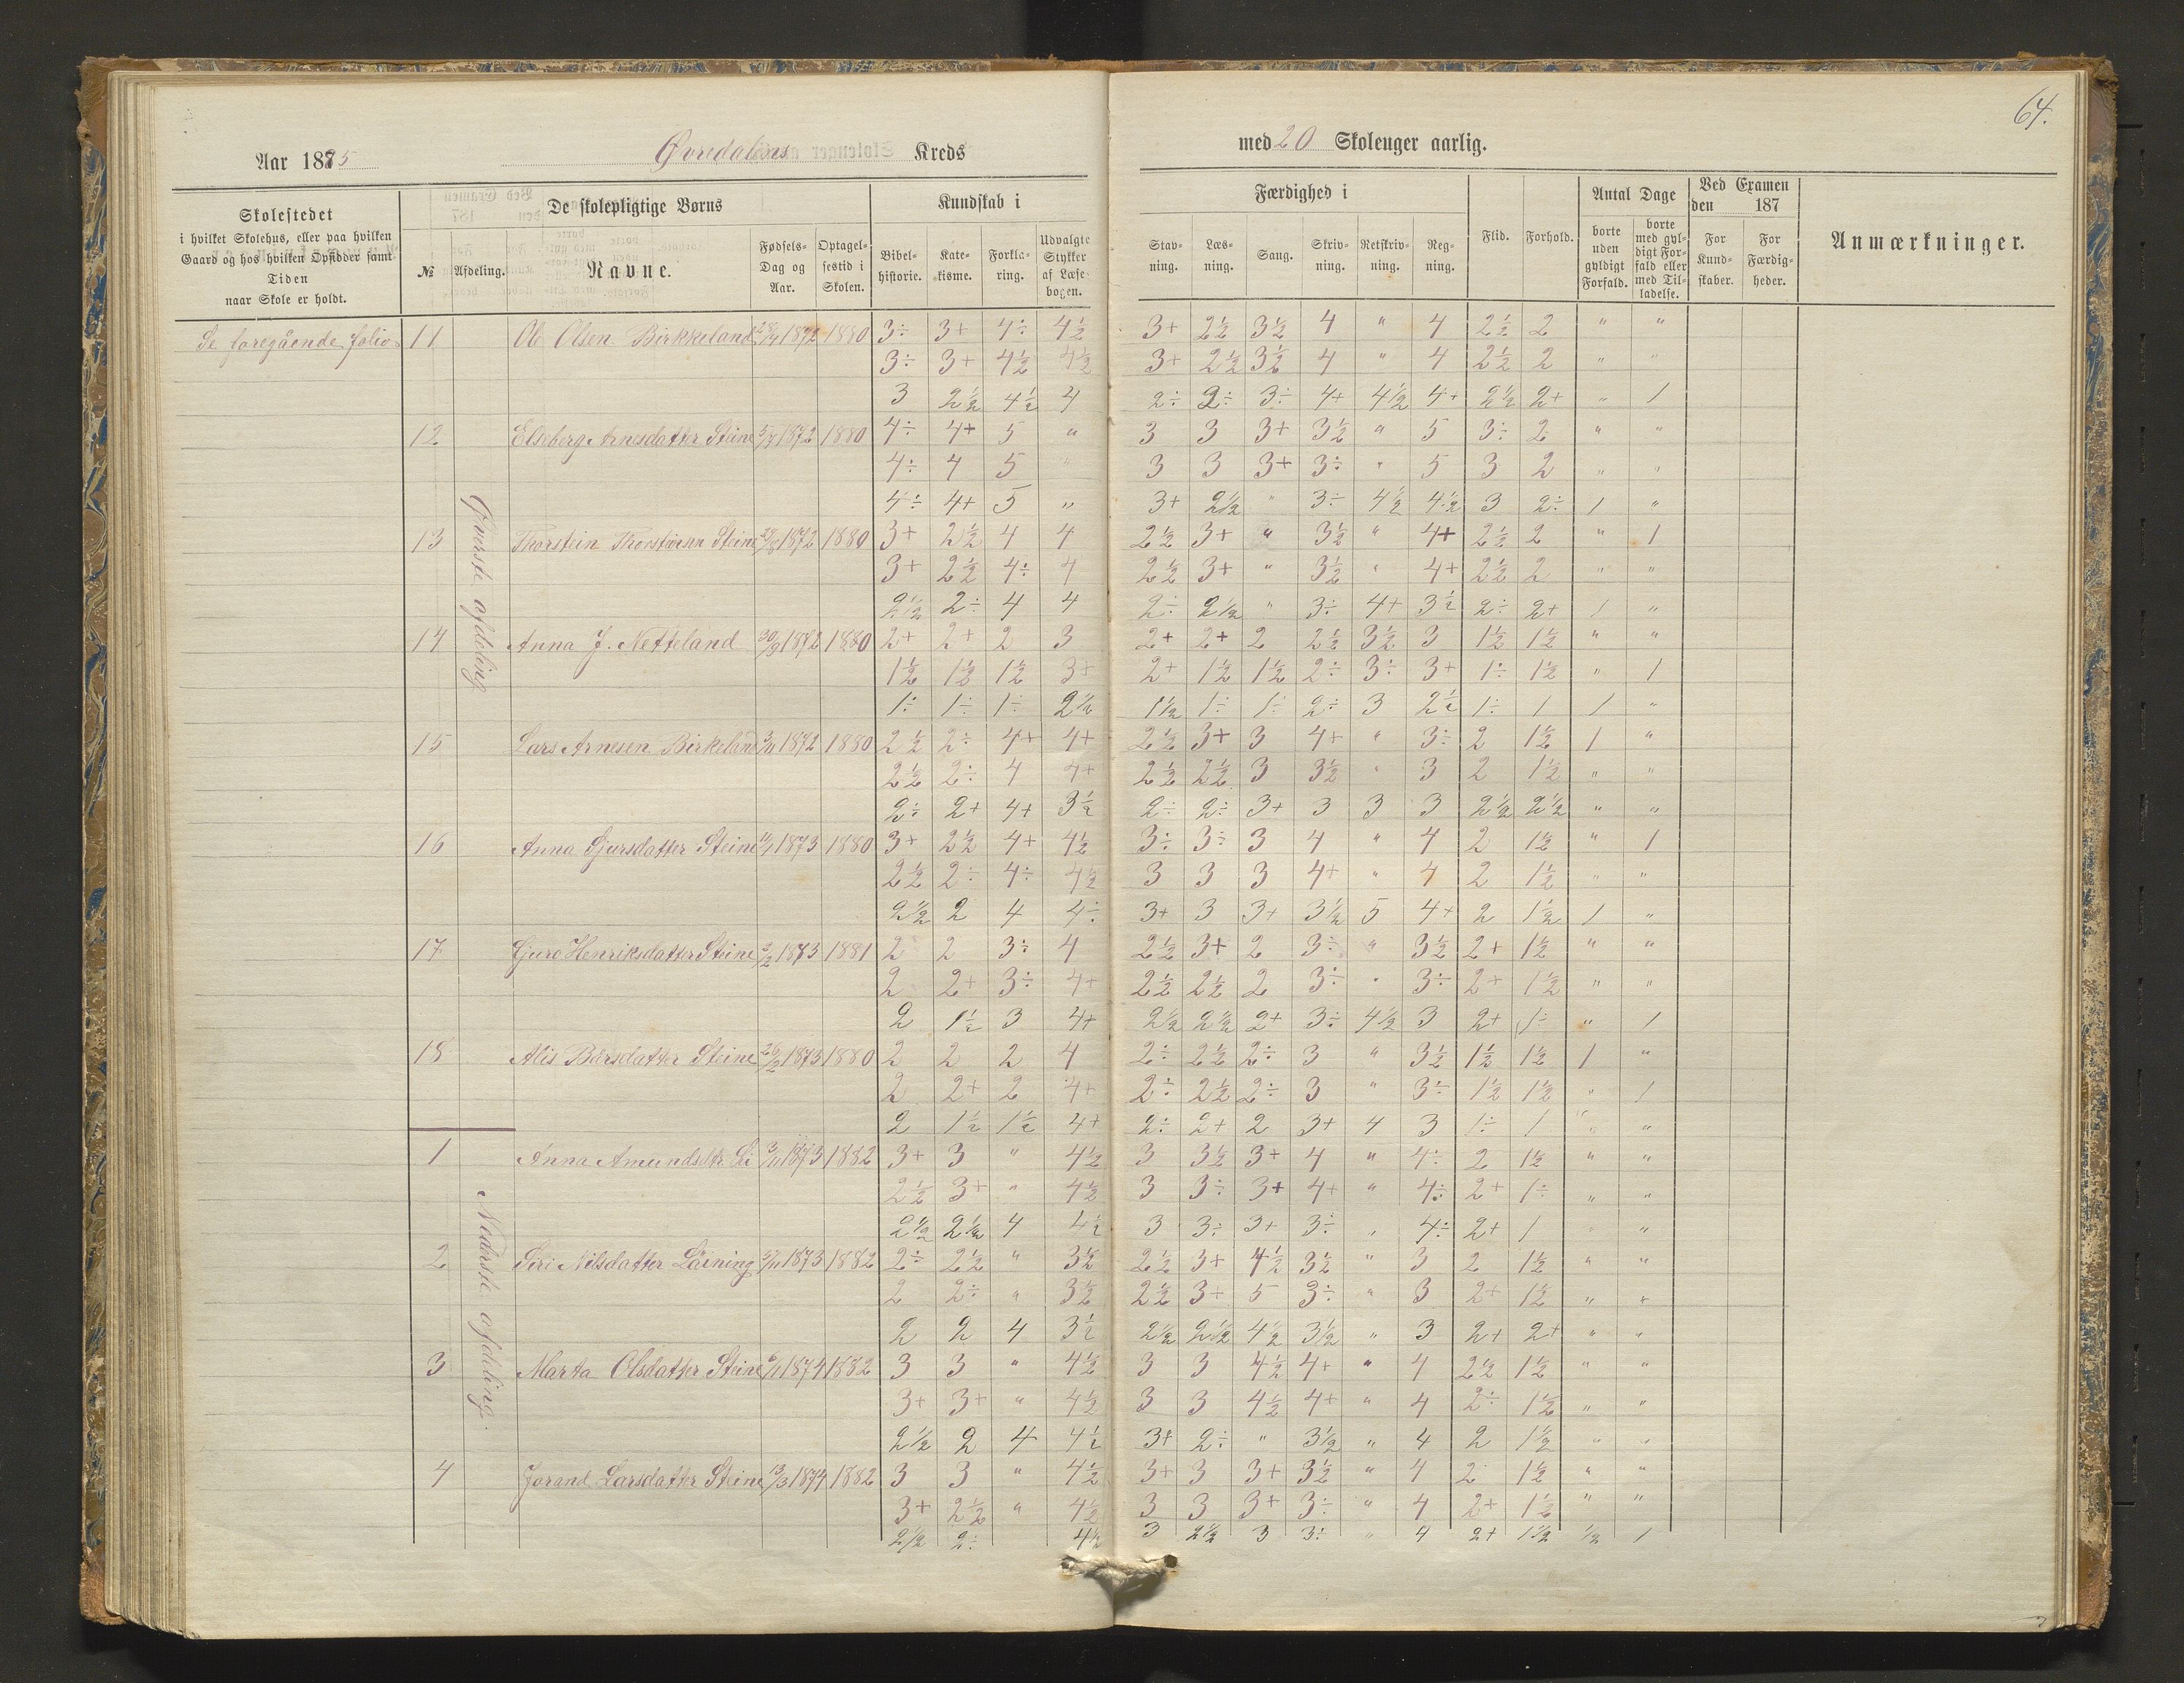 64.
Aar 1885 Øvredalens Kreds med 20 Skoleuger aarlig.
Skolestedet i hvilket Skolehus, eller paa hvilken Gaard og hos hvilken Opsidder samt Tiden naar Skole er holdt.
De skolepligtige Børns
№ Afdeling. Navne. Fødsels-Dag og Aar. Optagelsestid i Skolen.
Kundskab i
Bibelhistorie. Katekisme. Forklaring. Udvalgte Stykker af Læsebogen.
Færdighed i
Stavning. Læsning. Sang. Skrivning. Retskrivning. Regning.
Flid. Forhold.
Antal Dage
borte uden gyldigt Forfald. borte med gyldigt Forfald eller med Tilladelse.
Ved Examen den 187
For Kundskaber. For Færdigheder.
Anmærkninger.
Se foregående folio
Øverste afdeling
11 Ole Olsen Birkkeland 1872 1880 3÷ 3+ 4÷ 4½ 3+ 2½ 3½ 4 " 4 2½ 2 " "
3÷ 3+ 4½ 4½ 3+ 2½ 3½ 4 " 4 2½ 2 " "
3 2½ 4½ 4 2÷ 2÷ 3÷ 4+ 4½ 4+ 2½ 2+ " 1
12 Elseberg Arnesdatter Steine 1872 1880 4÷ 4+ 5 " 3 3 3+ 3½ " 5 3÷ 2 " "
4÷ 4 5 " 3 3 3+ 3÷ " 5 3 2 " "
4÷ 4+ 5 " 3+ 2½ " 3÷ 4½ 4½ 3 2÷ 1 "
13 Thorstein Thorsteinsen Steine 1872 1880 3+ 2½ 4 4 2½ 3+ " 3½ " 4+ 2½ 2 " 1
3+ 2½ 4÷ 4 2½ 3+ " 3½ " 4+ 2½ 2 " "
2½ 2÷ 4 4 2÷ 2½ " 3÷ 4+ 3½ 2÷ 2+ 1 "
14 Anna J. Netteland 30/9 1872 1880 2+ 2+ 2 3 2+ 2+ 2 2½ 3½ 3 1½ 1½ " "
1½ 1½ 1½ 3+ 2+ 1½ 1½ 2÷ 3÷ 3+ 1÷ 1½ " 1
1÷ 1÷ 1÷ 2½ 1½ 1÷ 1÷ 2÷ 3 2½ 1÷ 1 1 "
15 Lars Arnesen Birkeland 1872 1880 2½ 2÷ 4+ 4+ 2½ 3+ 3 4+ " 3÷ 2 1½ 1 "
2½ 2÷ 4 4+ 2½ 2½ 3 3½ " 3 2 1½ " "
2÷ 2+ 4+ 3½ 2÷ 2÷ 3+ 3 3 3 2½ 2½ " "
16 Anna Sjursdatter Steine 11/1 1873 1880 3+ 2½ 4+ 4½ 3÷ 3÷ 3 4 " 4 2 1½ " 1
2½ 2÷ 4÷ 4½ 3 3 3 4+ " 4 2 1½ " "
2½ 2 4 4÷ 3+ 3 3+ 3½ 5 4+ 2 1½ 1 "
17 Gjuro Henriksdatter Steine 1873 1881 2 2 3÷ 4 2½ 3+ 2 3÷ " 3½ 2+ 1½ " "
2 2+ 3÷ 4+ 2½ 2½ 2 3÷ " 3÷ 2+ 1½ " "
2 1½ 3 4+ 2½ 2½ 2+ 3÷ 4½ 3 2+ 1÷ " 1
18 Alis Bårsdatter Steine 26/2 1873 1880 2 2 2 4 2÷ 2½ 2÷ 3 " 3½ 1½ 1½ 1 "
2 2+ 2 4+ 2÷ 2½ 2÷ 3 " 3÷ 1½ 1½ " 1
2 1½ 1½ 4+ 2÷ 2+ 2 3+ 4 3 1÷ 1 " "
Nederste afdeling.
1 Anna Amundsdtr 1873 1882 3+ 3 " 4½ 3 3½ 3+ 4 " 4÷ 2 1½ " "
2½ 3+ " 4½ 3 3÷ 3+ 4+ " 4÷ 2+ 1÷ " "
2½ 2½ 4 4½ 3 3÷ 3+ 3÷ " 4÷ 2+ 1 " "
2 Siri Nilsdatter Låining 1873 1882 2÷ 2½ " 3½ 2½ 3+ 4½ 3½ " 3 2 1½ " "
2 2÷ " 3½ 2½ 3+ 5 3÷ " 3 2+ 1½ " "
2 2 4 3½ 2½ 2½ 4½ 3½ " 3 2+ 2+ " "
3 Marta Olsdatter Steine 1874 1882 3 3 " 4½ 3 3 4½ 4+ " 4 2½ 1½ " "
3+ 3+ " 4½ 3 3 4½ 4+ " 4 2÷ 1½ " "
2½ 2 4 4½ 3+ 2÷ " 3½ " 4 2 1½ " "
4 Jorand Larsdatter Steine 13/3 1874 1882 3 3 " 4½ 3+ 3 3+ 3½ " 4 2 1½ " "
3+ 2½ " 4½ 3 3 3+ 3÷ " 4 2+ 1½ " "
2½ 2÷ 4½ 3 2½ 3 3÷ " 4 2+ 1½ ½ 1